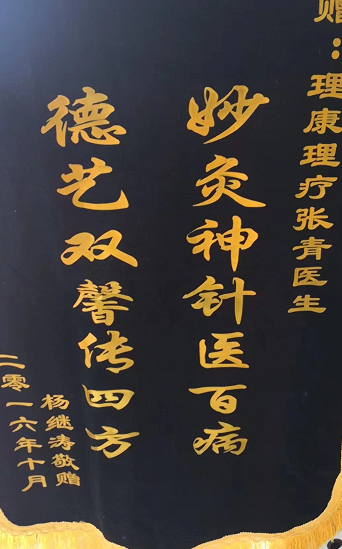 赠：理康理疗张青医生
妙灸神针医百病
德艺双馨传四方
杨继涛敬赠
二零一六年十月